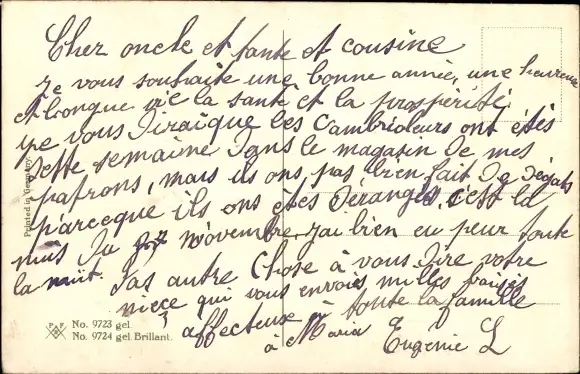 Cher oncle et tante et cousine
je vous souhaite une bonne année, une heureuse
et longue vie la santé et la prospérité
je vous diraique les cambrioleurs ont étés
cette semaine dans le magasin de mes
patrons, mais ils ons pas bien fait de dégats
parceque ils ons étes dérangés, c'est la
nuis du 7 novembre, jai bien eu peur toute
la nuit. Pas autre chose à vous dire votre
niece qui vous envois milles baisés
affecteux à toute la famille
à Maria Eugenie L
Printed in Germany.
PFB
No. 9723 gel.
No. 9724 gel. Brillant.